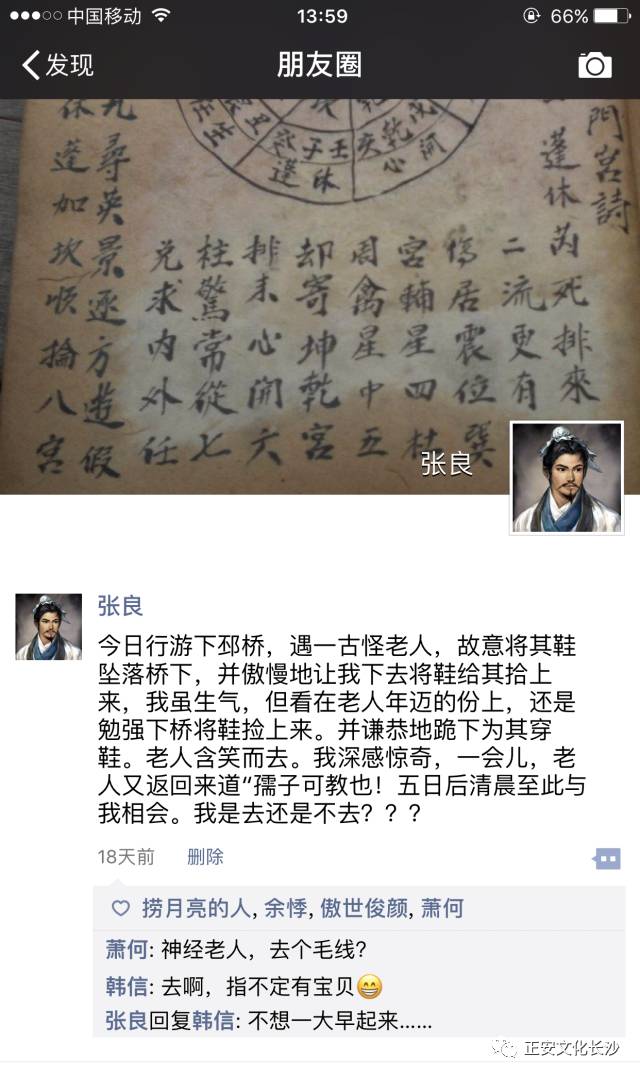 中国移动
13:59
66%
发现
朋友圈
門宮詩
蓬休芮死排來
二流更有
傷居震位巽
宮輔星四杜
周禽星中五
却寄坤乾宮
心開六
柱驚常從七
兌求內外任
尋英景逐方遊假
休蓬加坎順八宮
张良
张良
今日行游下邳桥，遇一古怪老人，故意将其鞋
坠落桥下，并傲慢地让我下去将鞋给其拾上
来，我虽生气，但看在老人年迈的份上，还是
勉强下桥将鞋捡上来。并谦恭地跪下为其穿
鞋。老人含笑而去。我深感惊奇，一会儿，老
人又返回来道“孺子可教也！五日后清晨至此与
我相会。我是去还是不去？？？
18天前 删除
捞月亮的人, 余悸, 傲世俊颜, 萧何
萧何: 神经老人，去个毛线?
韩信: 去啊，指不定有宝贝😁
张良回复韩信: 不想一大早起来......
正安文化长沙